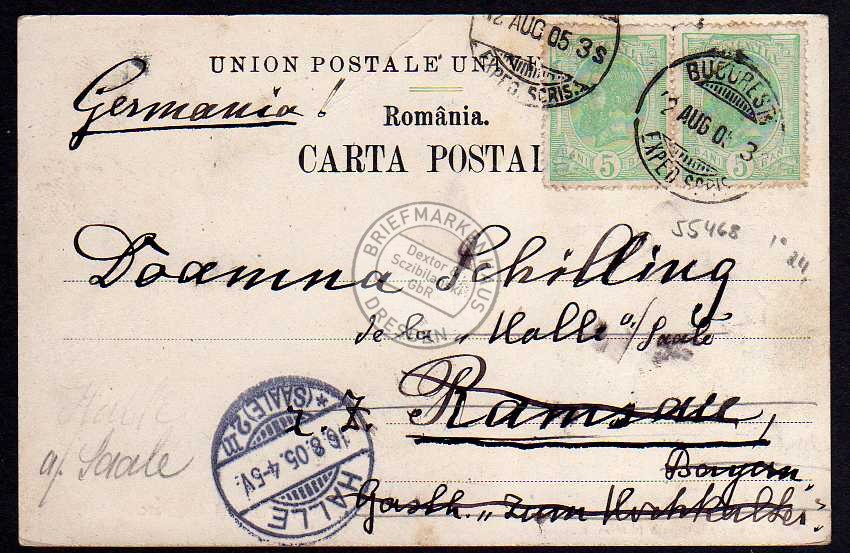 12 AUG 05 3S
EXPED. SCRIS.
UNION POSTALE UNI
Germania!
România.
CARTA POSTAL
BANI 5
5 BANI
BUCUREST
12 AUG 05 3
EXPED. SCRIS
55468
BRIEFMARKENHAUS
Dextor &
Sczibilanski
GbR
DRESDEN
Doamna Schilling
de la „Halle a./Saale
z. Z. Ramsau,
Bayern
Gasth. „zum Hochkalter"
Halle
a/ Saale
* (SAALE) 2 m
16.8.05.4-5V.
HALLE